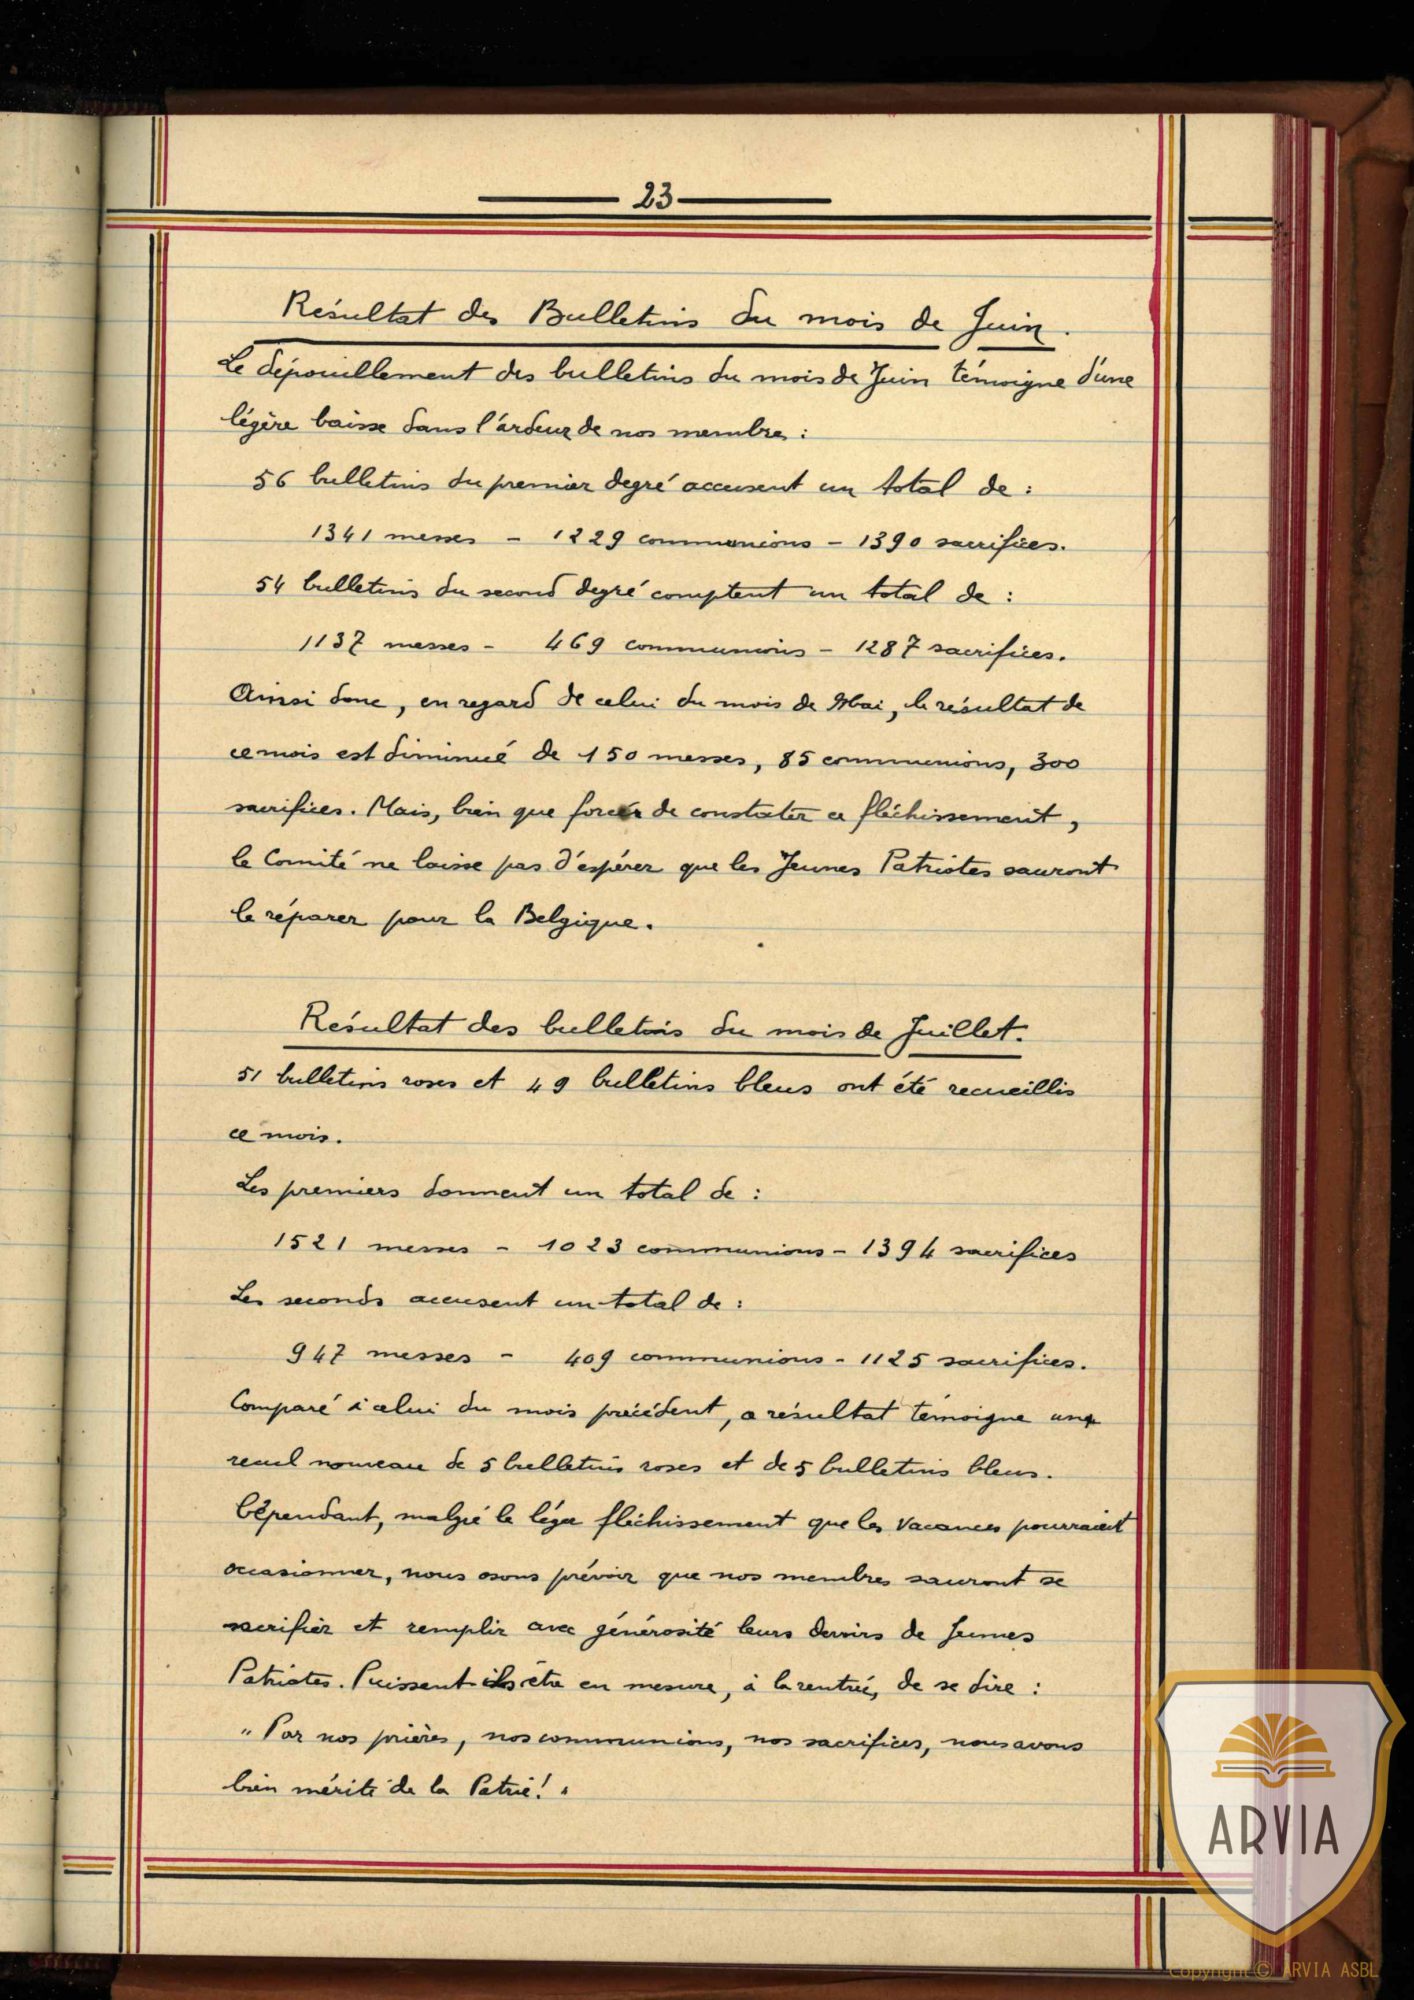 23
Résultat des Bulletins du mois de Juin.
Le dépouillement des bulletins du mois de Juin témoigne d'une
légère baisse dans l'ardeur de nos membres :
56 bulletins du premier degré accusent un total de :
1341 messes - 1229 communions - 1390 sacrifices.
54 bulletins du second degré comptent un total de :
1137 messes - 469 communions - 1287 sacrifices.
Ainsi donc, en regard de celui du mois de Mai, le résultat de
ce mois est diminué de 150 messes, 85 communions, 300
sacrifices. Mais, bien que forcés de constater ce fléchissement,
le Comité ne laisse pas d'espérer que les Jeunes Patriotes sauront
le réparer pour la Belgique.
Résultat des bulletins du mois de Juillet.
51 bulletins roses et 49 bulletins bleus ont été recueillis
ce mois.
Les premiers donnent un total de :
1521 messes - 1023 communions - 1394 sacrifices
Les seconds accusent un total de :
947 messes - 409 communions - 1125 sacrifices.
Comparé à celui du mois précédent, ce résultat témoigne un
recul nouveau de 5 bulletins roses et de 5 bulletins bleus.
Cépendant, malgré le léger fléchissement que les vacances pourraient
occasionner, nous osons prévoir que nos membres sauront se
sacrifier et remplir avec générosité leurs devoirs de Jeunes
Patriotes. Puissent-ils être en mesure, à la rentrée, de se dire :
"Par nos prières, nos communions, nos sacrifices, nous avons
bien mérité de la Patrie!"
ARVIA
Copyright © ARVIA ASBL